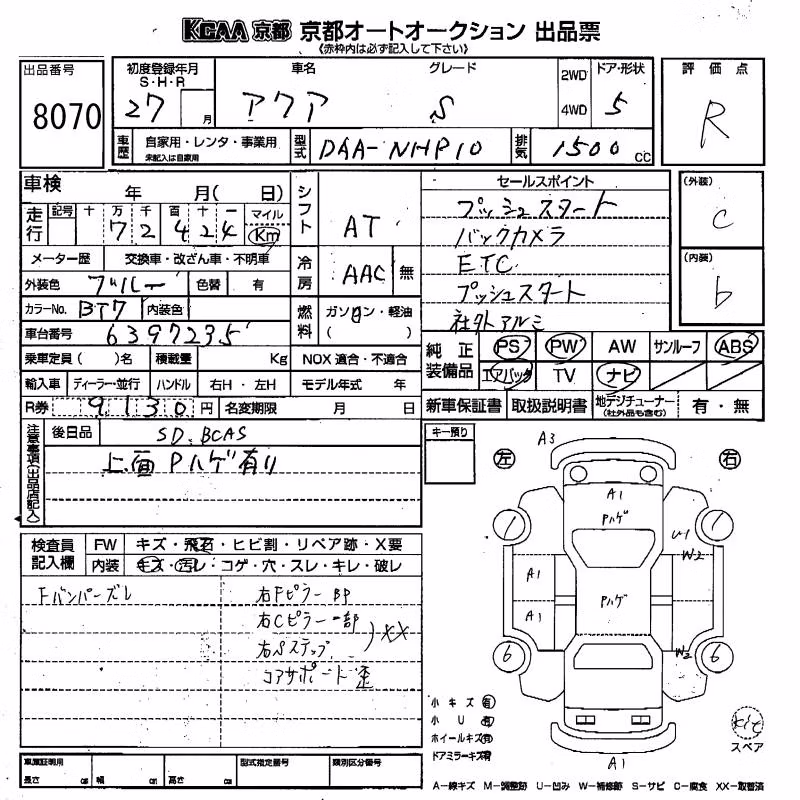 KCAA 京都 京都オートオークション 出品票
《赤枠内は必ず記入して下さい》
出品番号
8070
初度登録年月
S・H・R
27 月
車名
アクア
グレード
S
2WD
4WD
ドア・形状
5
評価点
R
車歴
自家用・レンタ・事業用
未記入は自家用
型式
DAA-NHP10
排気
1500 cc
車検 年 月( 日)
走行
記号 十 万 千 百 十 一
7 2 4 2 4
マイル
Km
メーター歴 交換車・改ざん車・不明車
外装色 ブルー 色替 有
カラーNo. BT7 内装色
車台番号 6397235
乗車定員( )名 積載量 Kg
輸入車 ディーラー・並行 ハンドル 右H・左H
R券 9130 円 名変期限 月 日
シフト AT
冷房 AAC 無
燃料 ガソリン・軽油
( )
NOX 適合・不適合
モデル年式 年
セールスポイント
プッシュスタート
バックカメラ
ETC
プッシュスタート
社外アルミ
(外装)
C
(内装)
b
純正装備品
PS PW AW サンルーフ ABS
エアバック TV ナビ
新車保証書 取扱説明書 地デジチューナー
(社外品も含む)
有・無
注意事項(出品店記入)
後日品 SD.BCAS
上面Pハゲ有り
キー預り
検査員記入欄
FW キズ・飛石・ヒビ割・リペア跡・X要
内装 キズ・汚レ・コゲ・穴・スレ・キレ・破レ
Fバンパーズレ
右Fピラー 一部
右Cピラー 一部
右Sステップ
XX
コアサポート歪
左
右
A3
A1
Pハゲ
U1
W2
A1
Pハゲ
A1
W2
A1
6
6
小キズ 有
小U 有
ホイールキズ 有
ドアミラーキズ 有
スペア
車庫証明用
長さ cm 幅 cm 高さ cm
型式指定番号
類別区分番号
A-線キズ M-調整跡 U-凹み W-補修跡 S-サビ C-腐食 XX-取替済